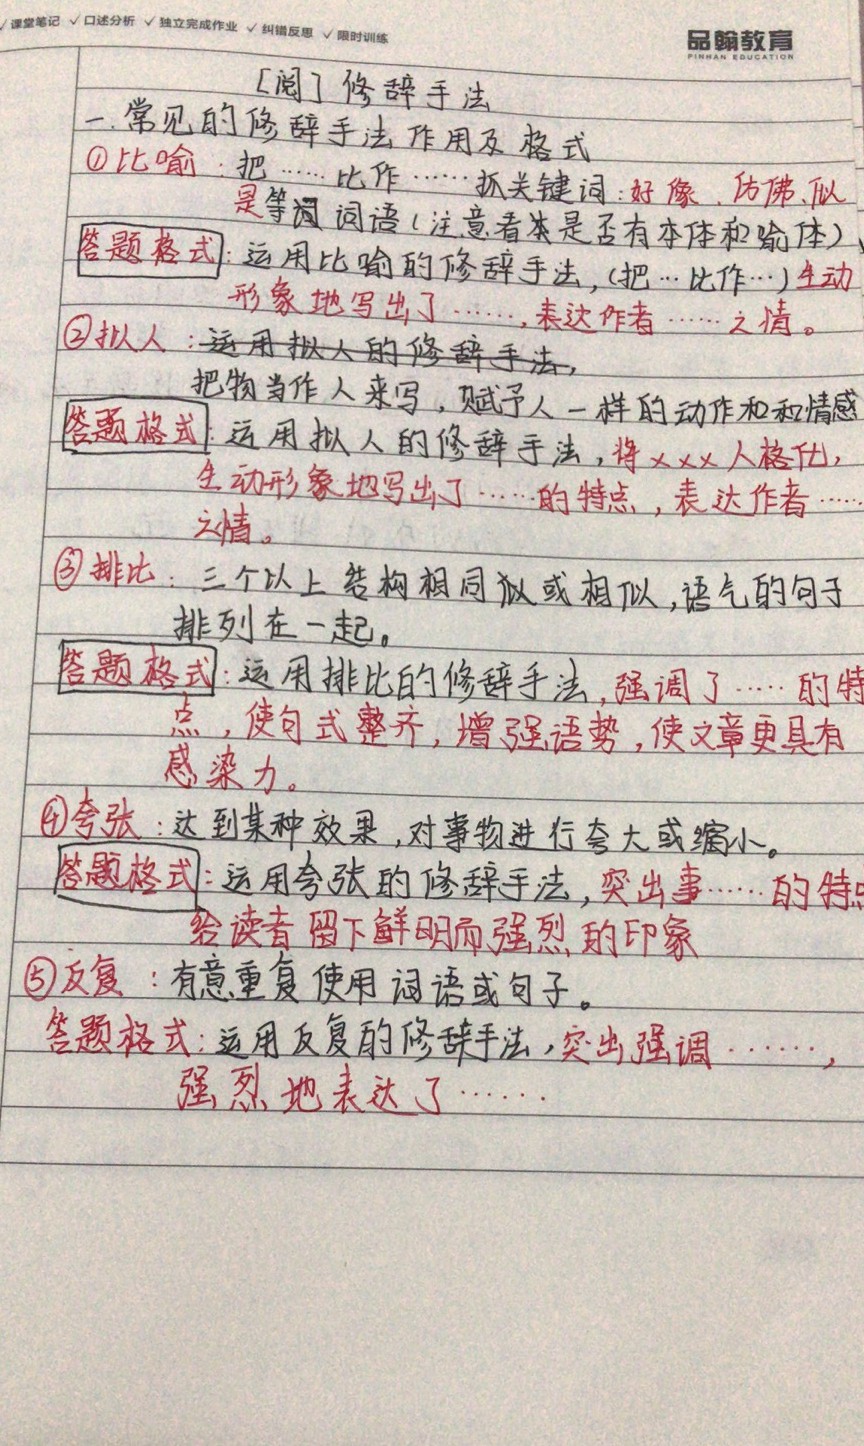 ✓课堂笔记 ✓口述分析 ✓独立完成作业 ✓纠错反思 ✓限时训练
品翰教育
PINHAN EDUCATION
[阅] 修辞手法
一.常见的修辞手法作用及格式
①比喻：把……比作……抓关键词：好像、仿佛、似
是等 词语（注意看 是否有本体和喻体）
答题格式：运用比喻的修辞手法，(把…比作…)生动
形象地写出了……，表达作者……之情。
②拟人：运用拟人的修辞手法，
把物当作人来写，赋予人一样的动作和和情感
答题格式：运用拟人的修辞手法，将×××人格化，
生动形象地写出了……的特点，表达作者……
之情。
③排比：三个以上结构相同似或相似，语气的句子
排列在一起。
答题格式：运用排比的修辞手法，强调了……的特
点，使句式整齐，增强语势，使文章更具有
感染力。
④夸张：达到某种效果，对事物进行夸大或缩小。
答题格式：运用夸张的修辞手法，突出事……的特点
给读者留下鲜明而强烈的印象
⑤反复：有意重复使用词语或句子。
答题格式：运用反复的修辞手法，突出强调……，
强烈地表达了……